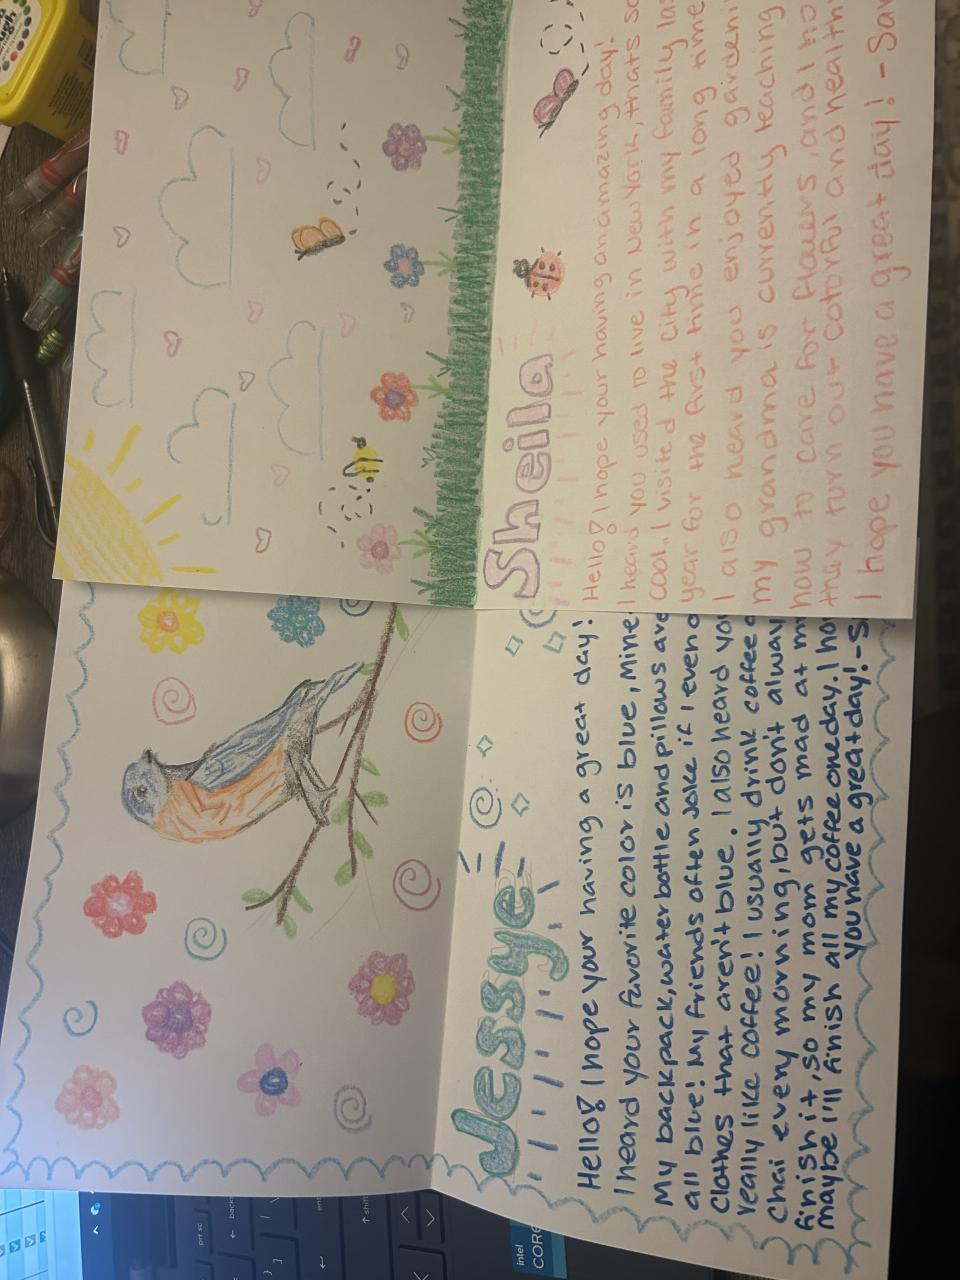 Sheila
Hello! I hope your having an amazing day!
I heard you used to live in New York, thats so
cool. I visited the city with my family las
year for the first time in a long time
I also heard you enjoyed gardeni
my grandma is currently teaching
how to care for flowers, and I ho
they turn out colorful and health
I hope you have a great day! - Sav
Jessye
Hello! I hope your having a great day!
I heard your favorite color is blue, Mine
My backpack, water bottle and pillows are
all blue! My friends often joke if I even o
clothes that aren't blue. I also heard you
really like coffee! I usually drink coffee o
chai every morning, but don't alway
finish it, so my mom gets mad at m
maybe I'll finish all my coffee one day. I ho
you have a great day! - S
prt sc
backs
enter
shift
intel
CORE